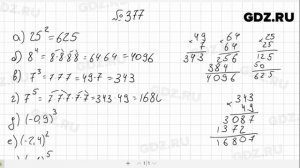 GDZ.RU
№377
а) 25² = 625
б) 8⁴ = 8·8·8·8 = 64·64 = 4096
в) 7³ = 7·7·7 = 49·7 = 343
г) 7⁵ = 7·7·7·7·7 = 343·49 = 1680
д) (-0,9)³
е) (-2,4)²
× 49
7
343
× 64
64
256
384
4096
× 25
25
125
50
625
× 343
49
3087
1372
16807
GDZ.RU